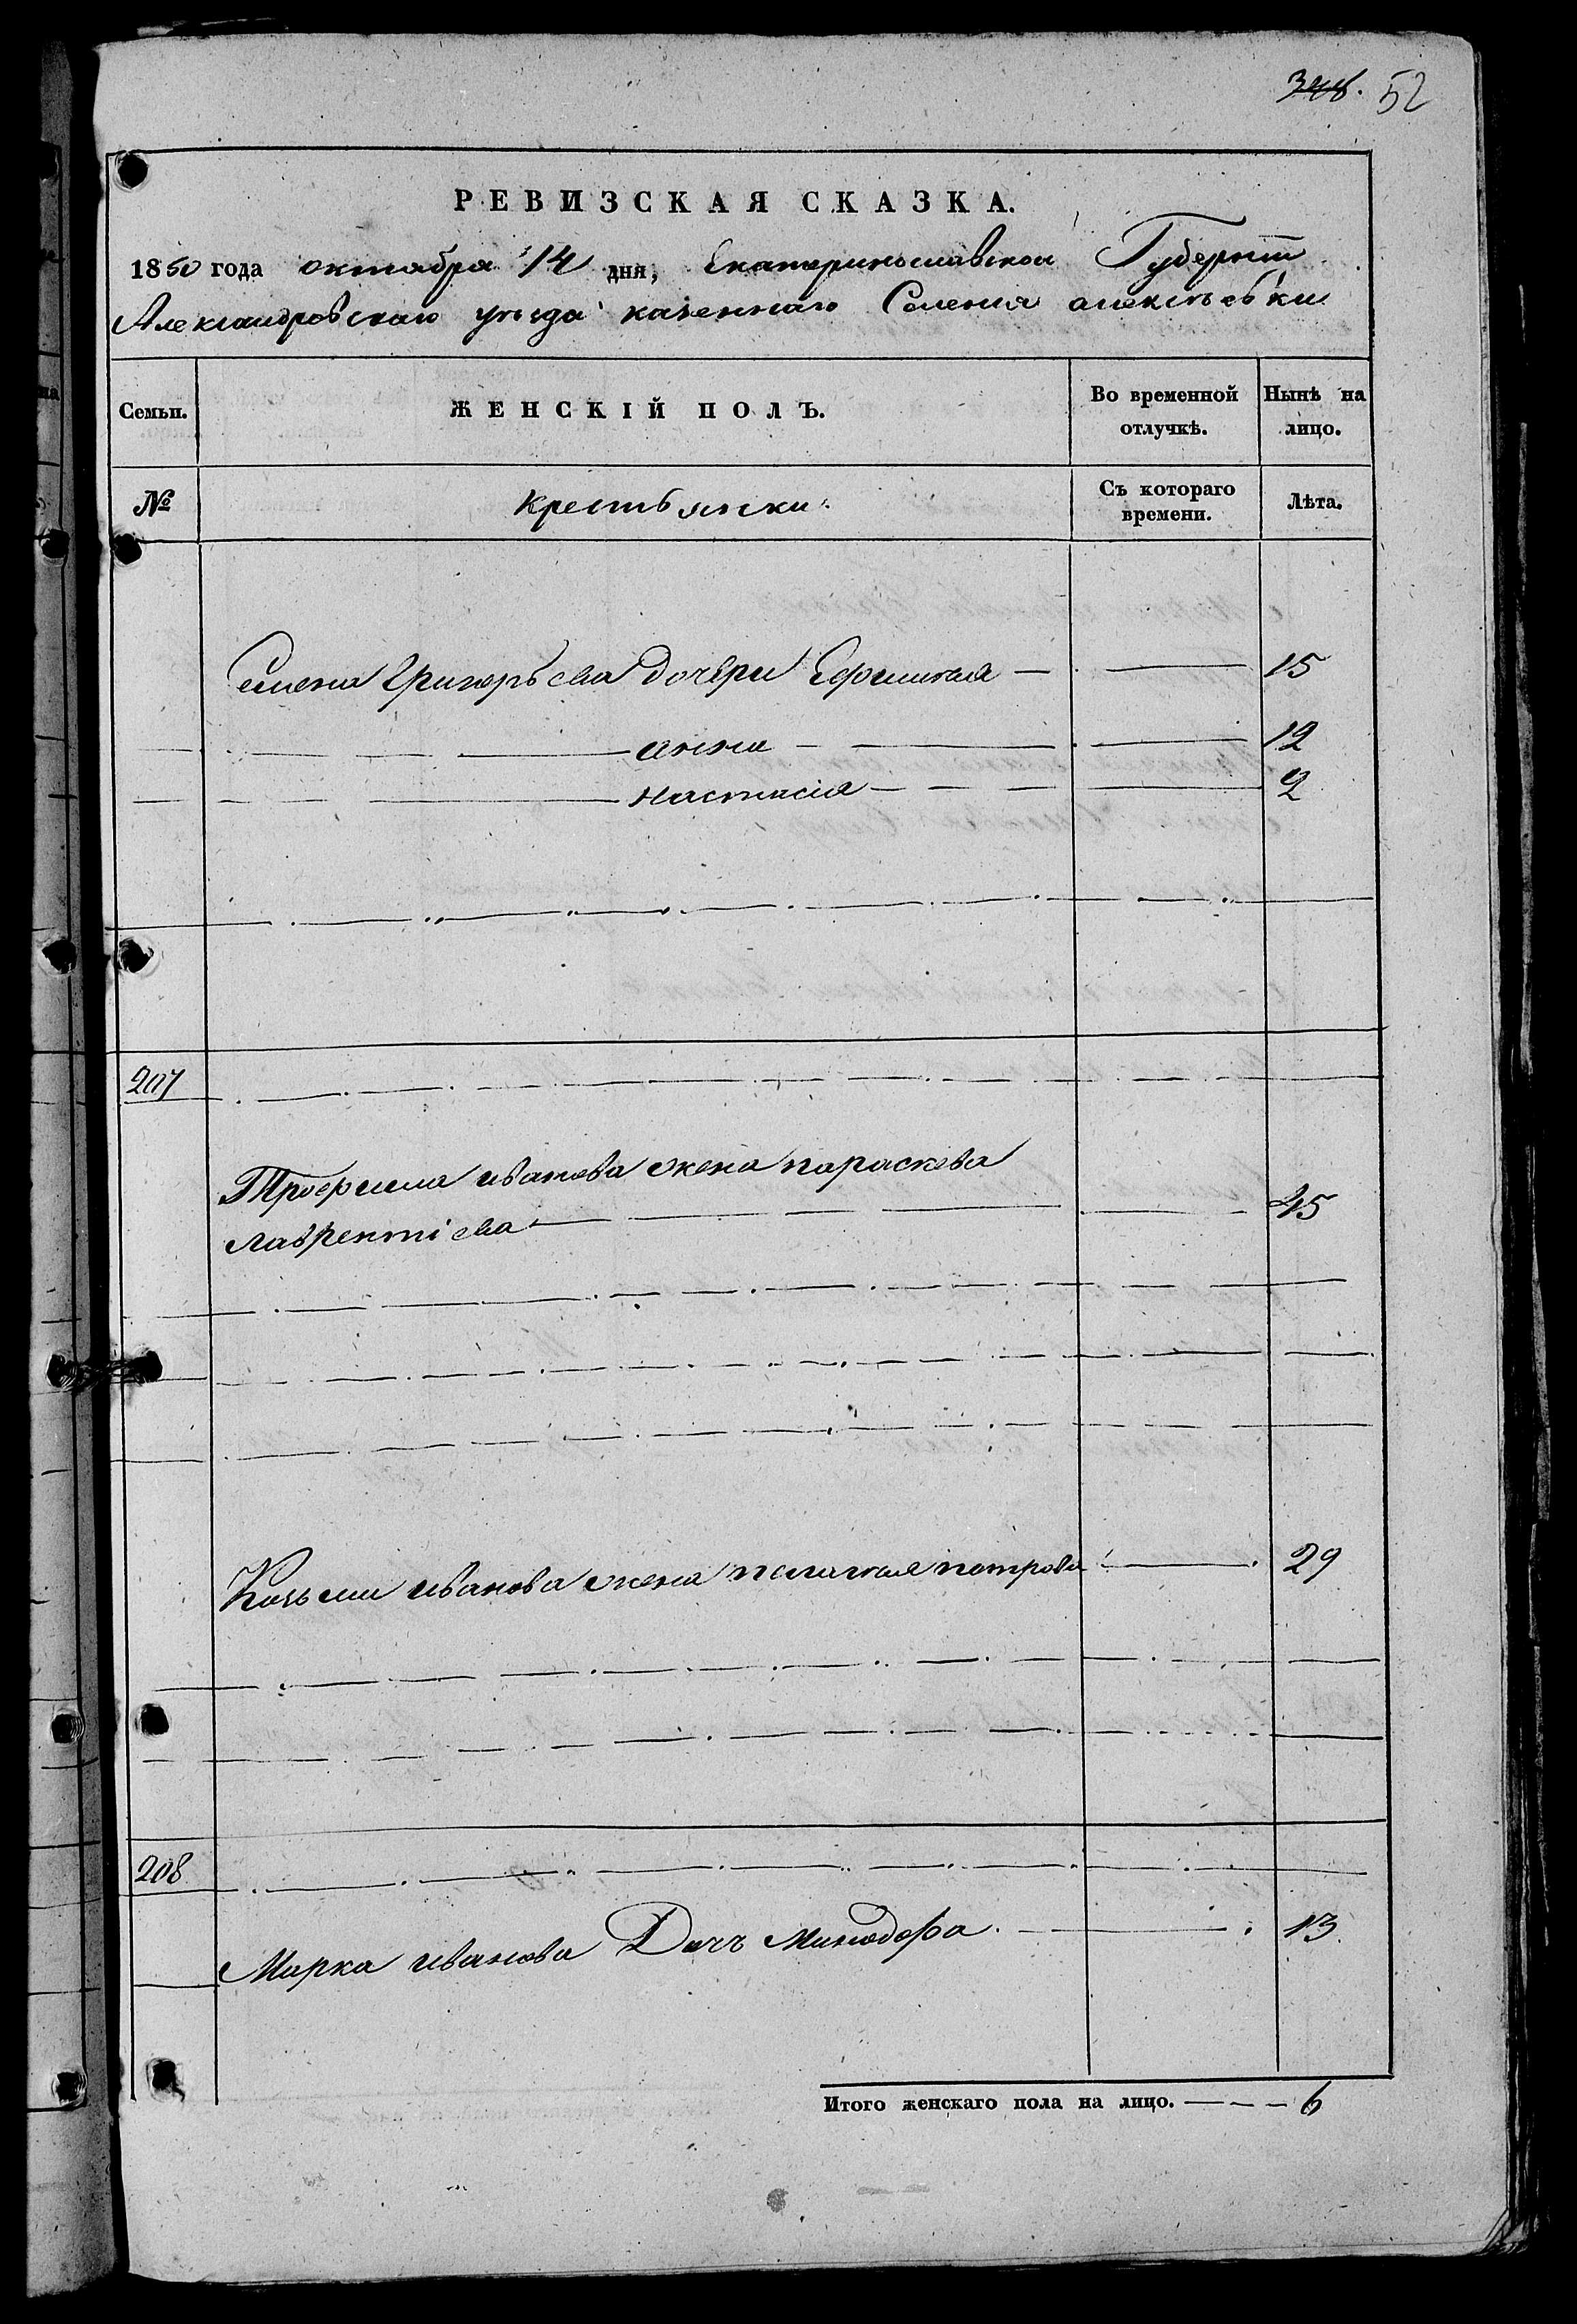 52
РЕВИЗСКАЯ СКАЗКА.
1850 года октября 14 дня, Екатеринославской Губернiи
Александровскаго уѣзда казеннаго Селенiя алексѣевки
Семьи. ЖЕНСКІЙ ПОЛЪ. Во временной отлучкѣ. Нынѣ на лицо.
№ Крестьянски: Съ котораго времени. Лѣта.
Семена Григорьева дочери Ефимия — — 15
— анна — — 12
— настасия — — 2
207
Трофима иванова жена параскева
лаврентiева — — 45
Козьми иванова жена пелагия петрова — 29
208
Марка иванова Дочъ Минодора. — 13
Итого женскаго пола на лицо. — — — 6